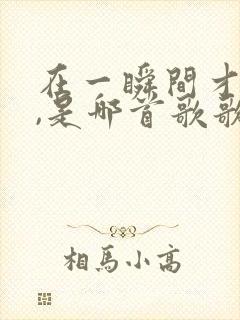 在一瞬間才
,是哪首歌歌
相馬小高